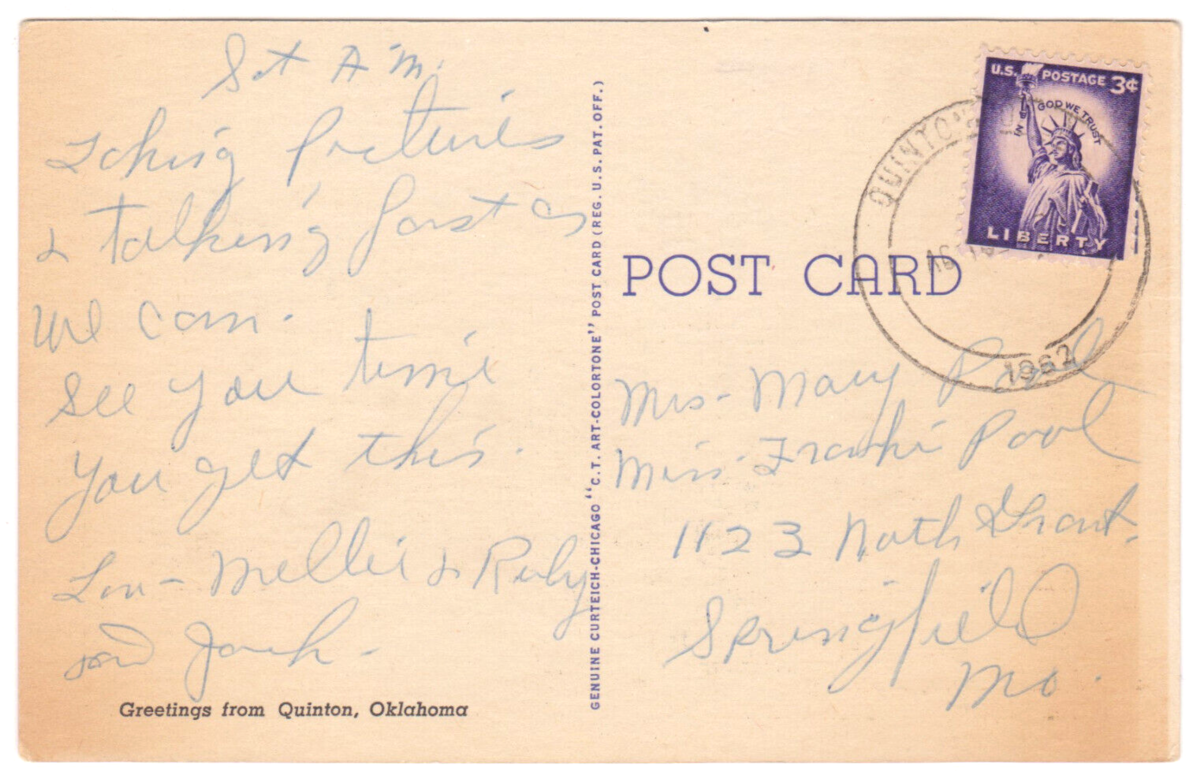 Sat A.M.
Taking Pictures
& talking fast as
we can.
See you time
you get this.
Lou - Mellie & Ruby
and Jack -
Greetings from Quinton, Oklahoma
GENUINE CURTEICH-CHICAGO "C.T. ART-COLORTONE" POST CARD (REG. U.S. PAT. OFF.)
U.S. POSTAGE 3¢
IN GOD WE TRUST
LIBERTY
QUINTON
1962
POST CARD
Mrs - Mary Pool
Miss Frankie Pool
1123 North Grant.
Springfield
Mo.